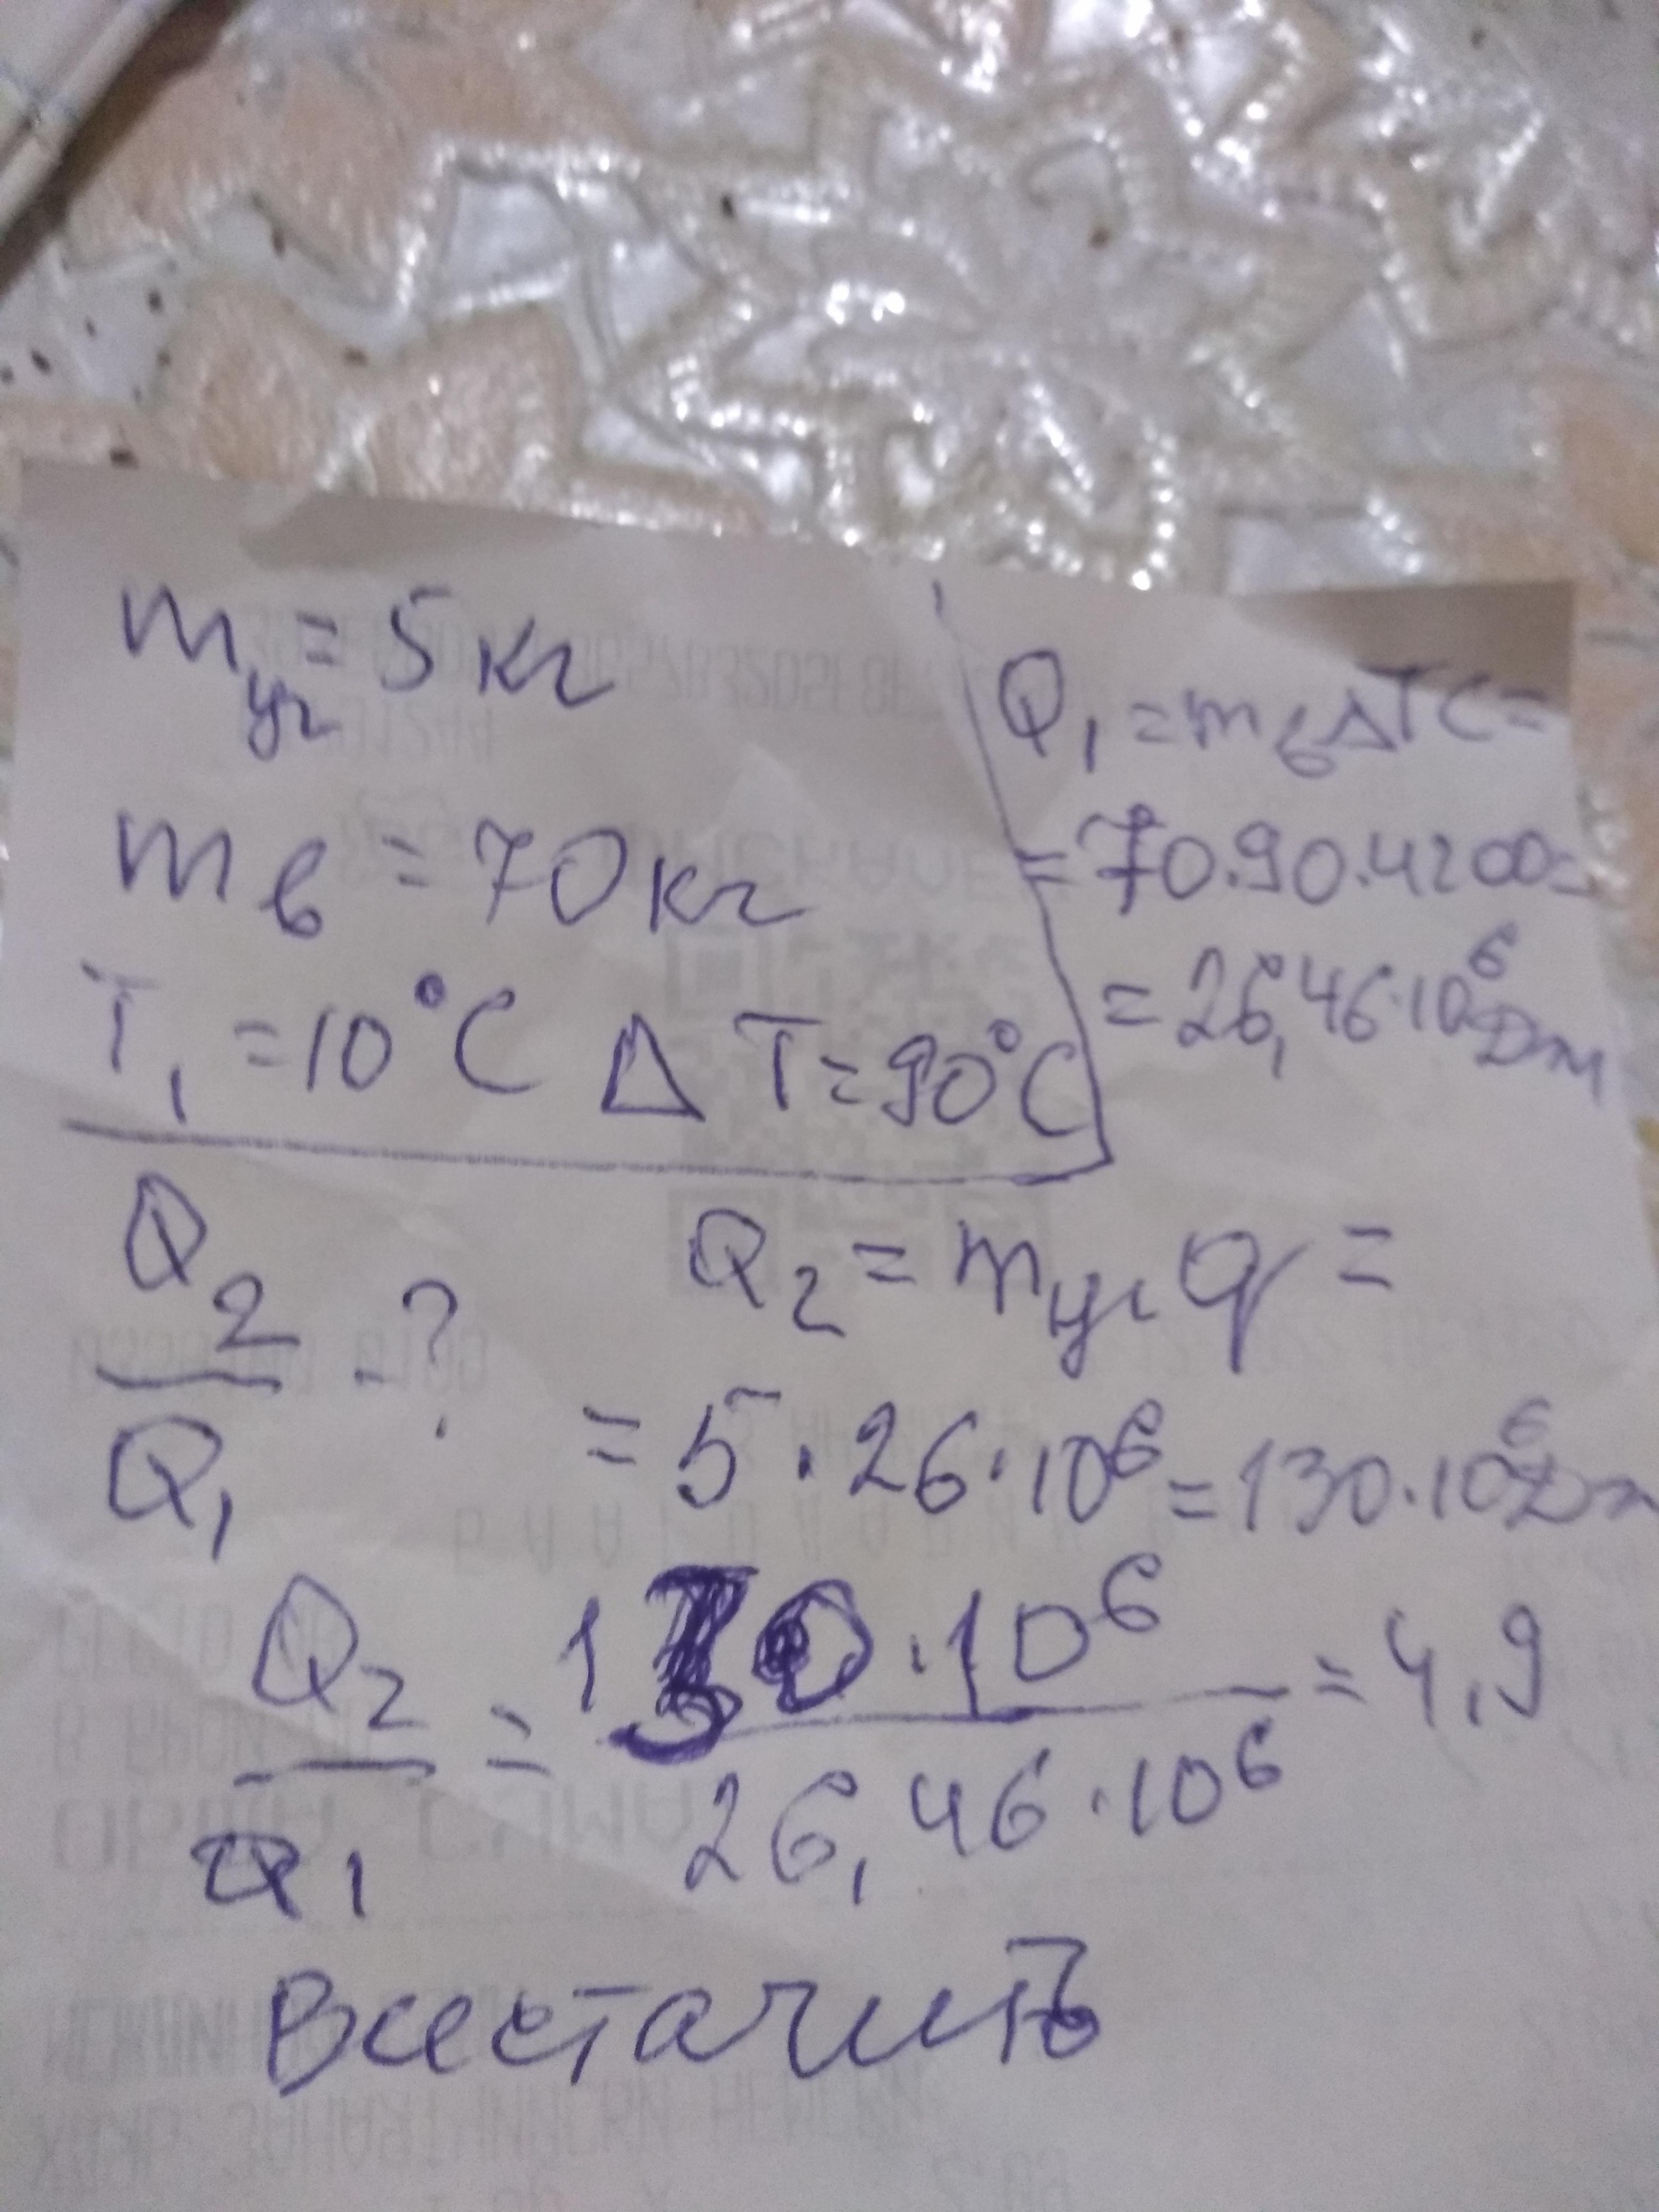 m уг = 5 кг
m в = 70 кг
T₁ = 10°C ΔT = 90°C
Q₁ = m в ΔTC =
= 70·90·4200=
= 26,46·10⁶ Дж
Q₂/Q₁ - ?
Q₂ = m уг q =
= 5·26·10⁶ = 130·10⁶ Дж
Q₂/Q₁ = 130·10⁶/26,46·10⁶ = 4,9